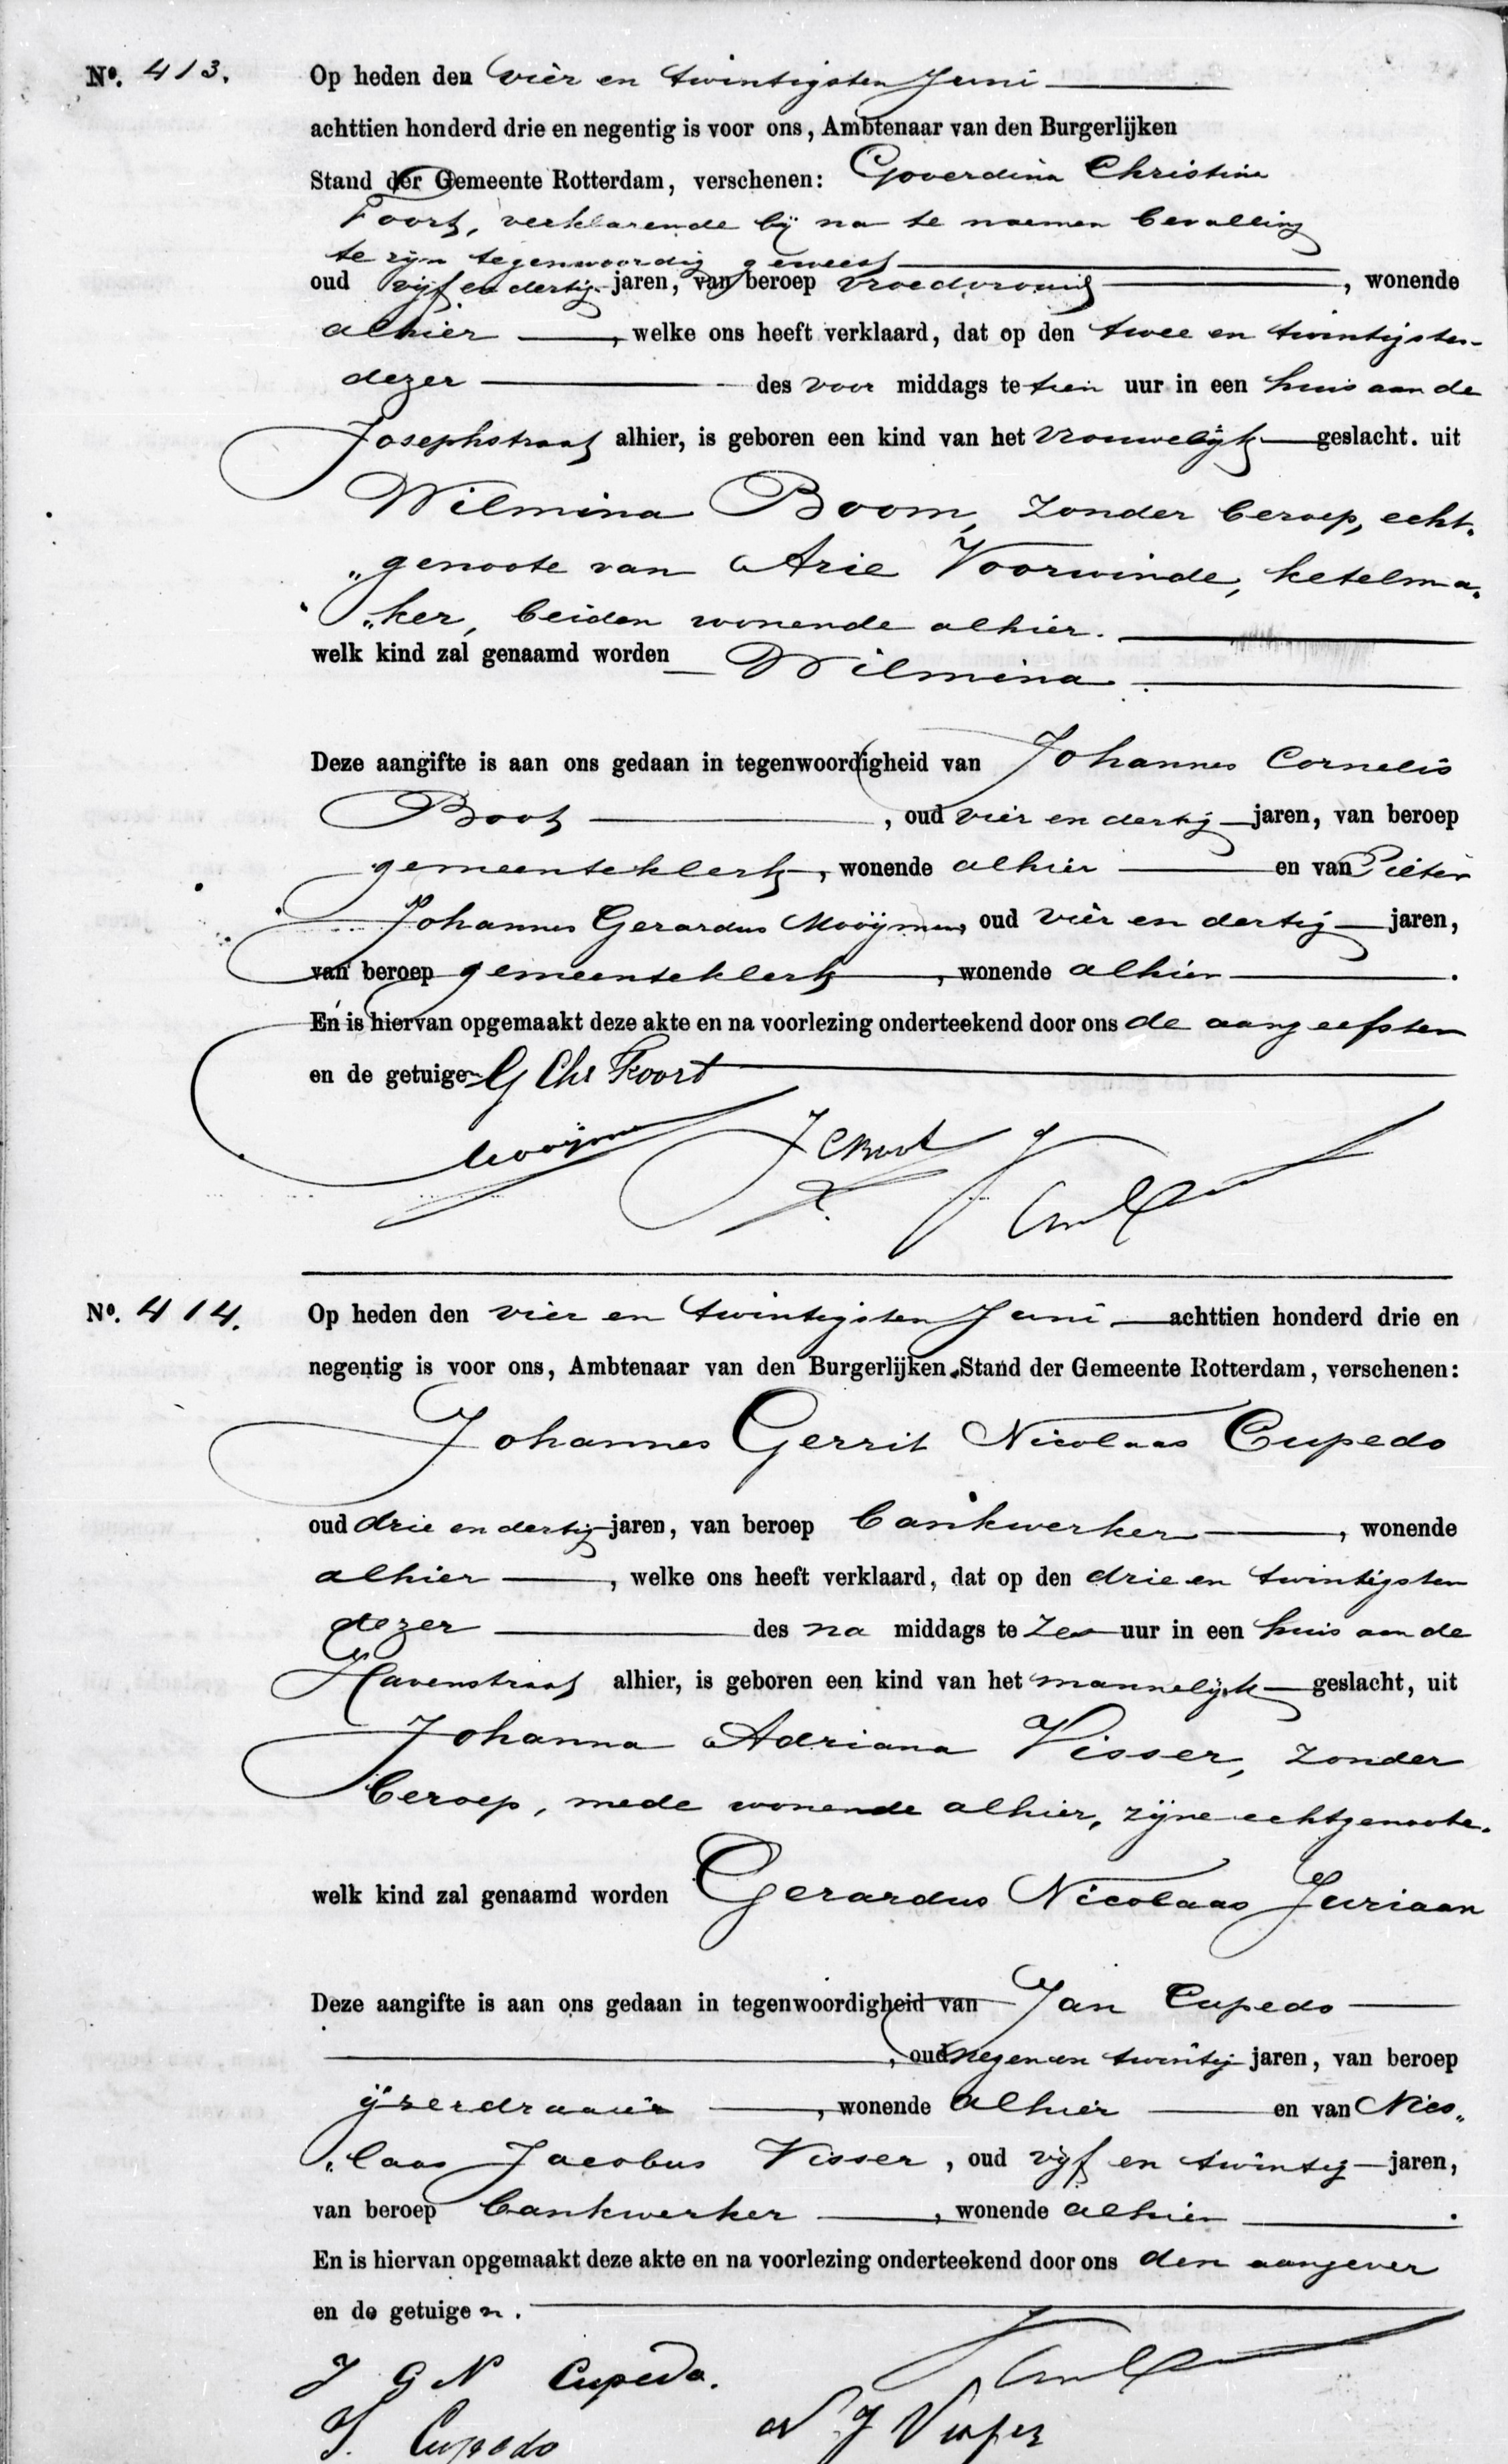 No. 413. Op heden den vier en twintigsten Juni
achttien honderd drie en negentig is voor ons, Ambtenaar van den Burgerlijken
Stand der Gemeente Rotterdam, verschenen: Goverdina Christina
Foort, verklarende bij na te noemen bevalling
te zijn tegenwoordig geweest
oud vijf en dertig jaren, van beroep vroedvrouw, wonende
alhier, welke ons heeft verklaard, dat op den twee en twintigsten
dezer des voor middags te tien uur in een huis aan de
Josephstraat alhier, is geboren een kind van het vrouwelijk geslacht. uit
Wilmina Boom, zonder beroep, echt„
„genoote van Arie Voorwinde, ketelma„
„ker, beiden wonende alhier.
welk kind zal genaamd worden Wilmina.
Deze aangifte is aan ons gedaan in tegenwoordigheid van Johannes Cornelis
Boot, oud vier en dertig jaren, van beroep
gemeenteklerk, wonende alhier en van Pieter
Johannes Gerardus Mooijman, oud vier en dertig jaren,
van beroep gemeenteklerk, wonende alhier.
En is hiervan opgemaakt deze akte en na voorlezing onderteekend door ons de aangeefster
en de getuigen G Chr Foort
Mooijman JCBoot
No. 414. Op heden den vier en twintigsten Juni achttien honderd drie en
negentig is voor ons, Ambtenaar van den Burgerlijken Stand der Gemeente Rotterdam, verschenen:
Johannes Gerrit Nicolaas Cupedo
oud drie en dertig jaren, van beroep bankwerker, wonende
alhier, welke ons heeft verklaard, dat op den drie en twintigsten
dezer des na middags te zes uur in een huis aan de
Havenstraat alhier, is geboren een kind van het mannelijk geslacht, uit
Johanna Adriana Visser, zonder
beroep, mede wonende alhier, zijne echtgenoote.
welk kind zal genaamd worden Gerardus Nicolaas Juriaan
Deze aangifte is aan ons gedaan in tegenwoordigheid van Jan Cupedo
, oud negen en twintig jaren, van beroep
ijzerdraaier, wonende alhier en van Nico„
„laas Jacobus Visser, oud vijf en twintig jaren,
van beroep bankwerker, wonende alhier.
En is hiervan opgemaakt deze akte en na voorlezing onderteekend door ons den aangever
en de getuigen.
J G N Cupedo.
J. Cupedo N J Visser